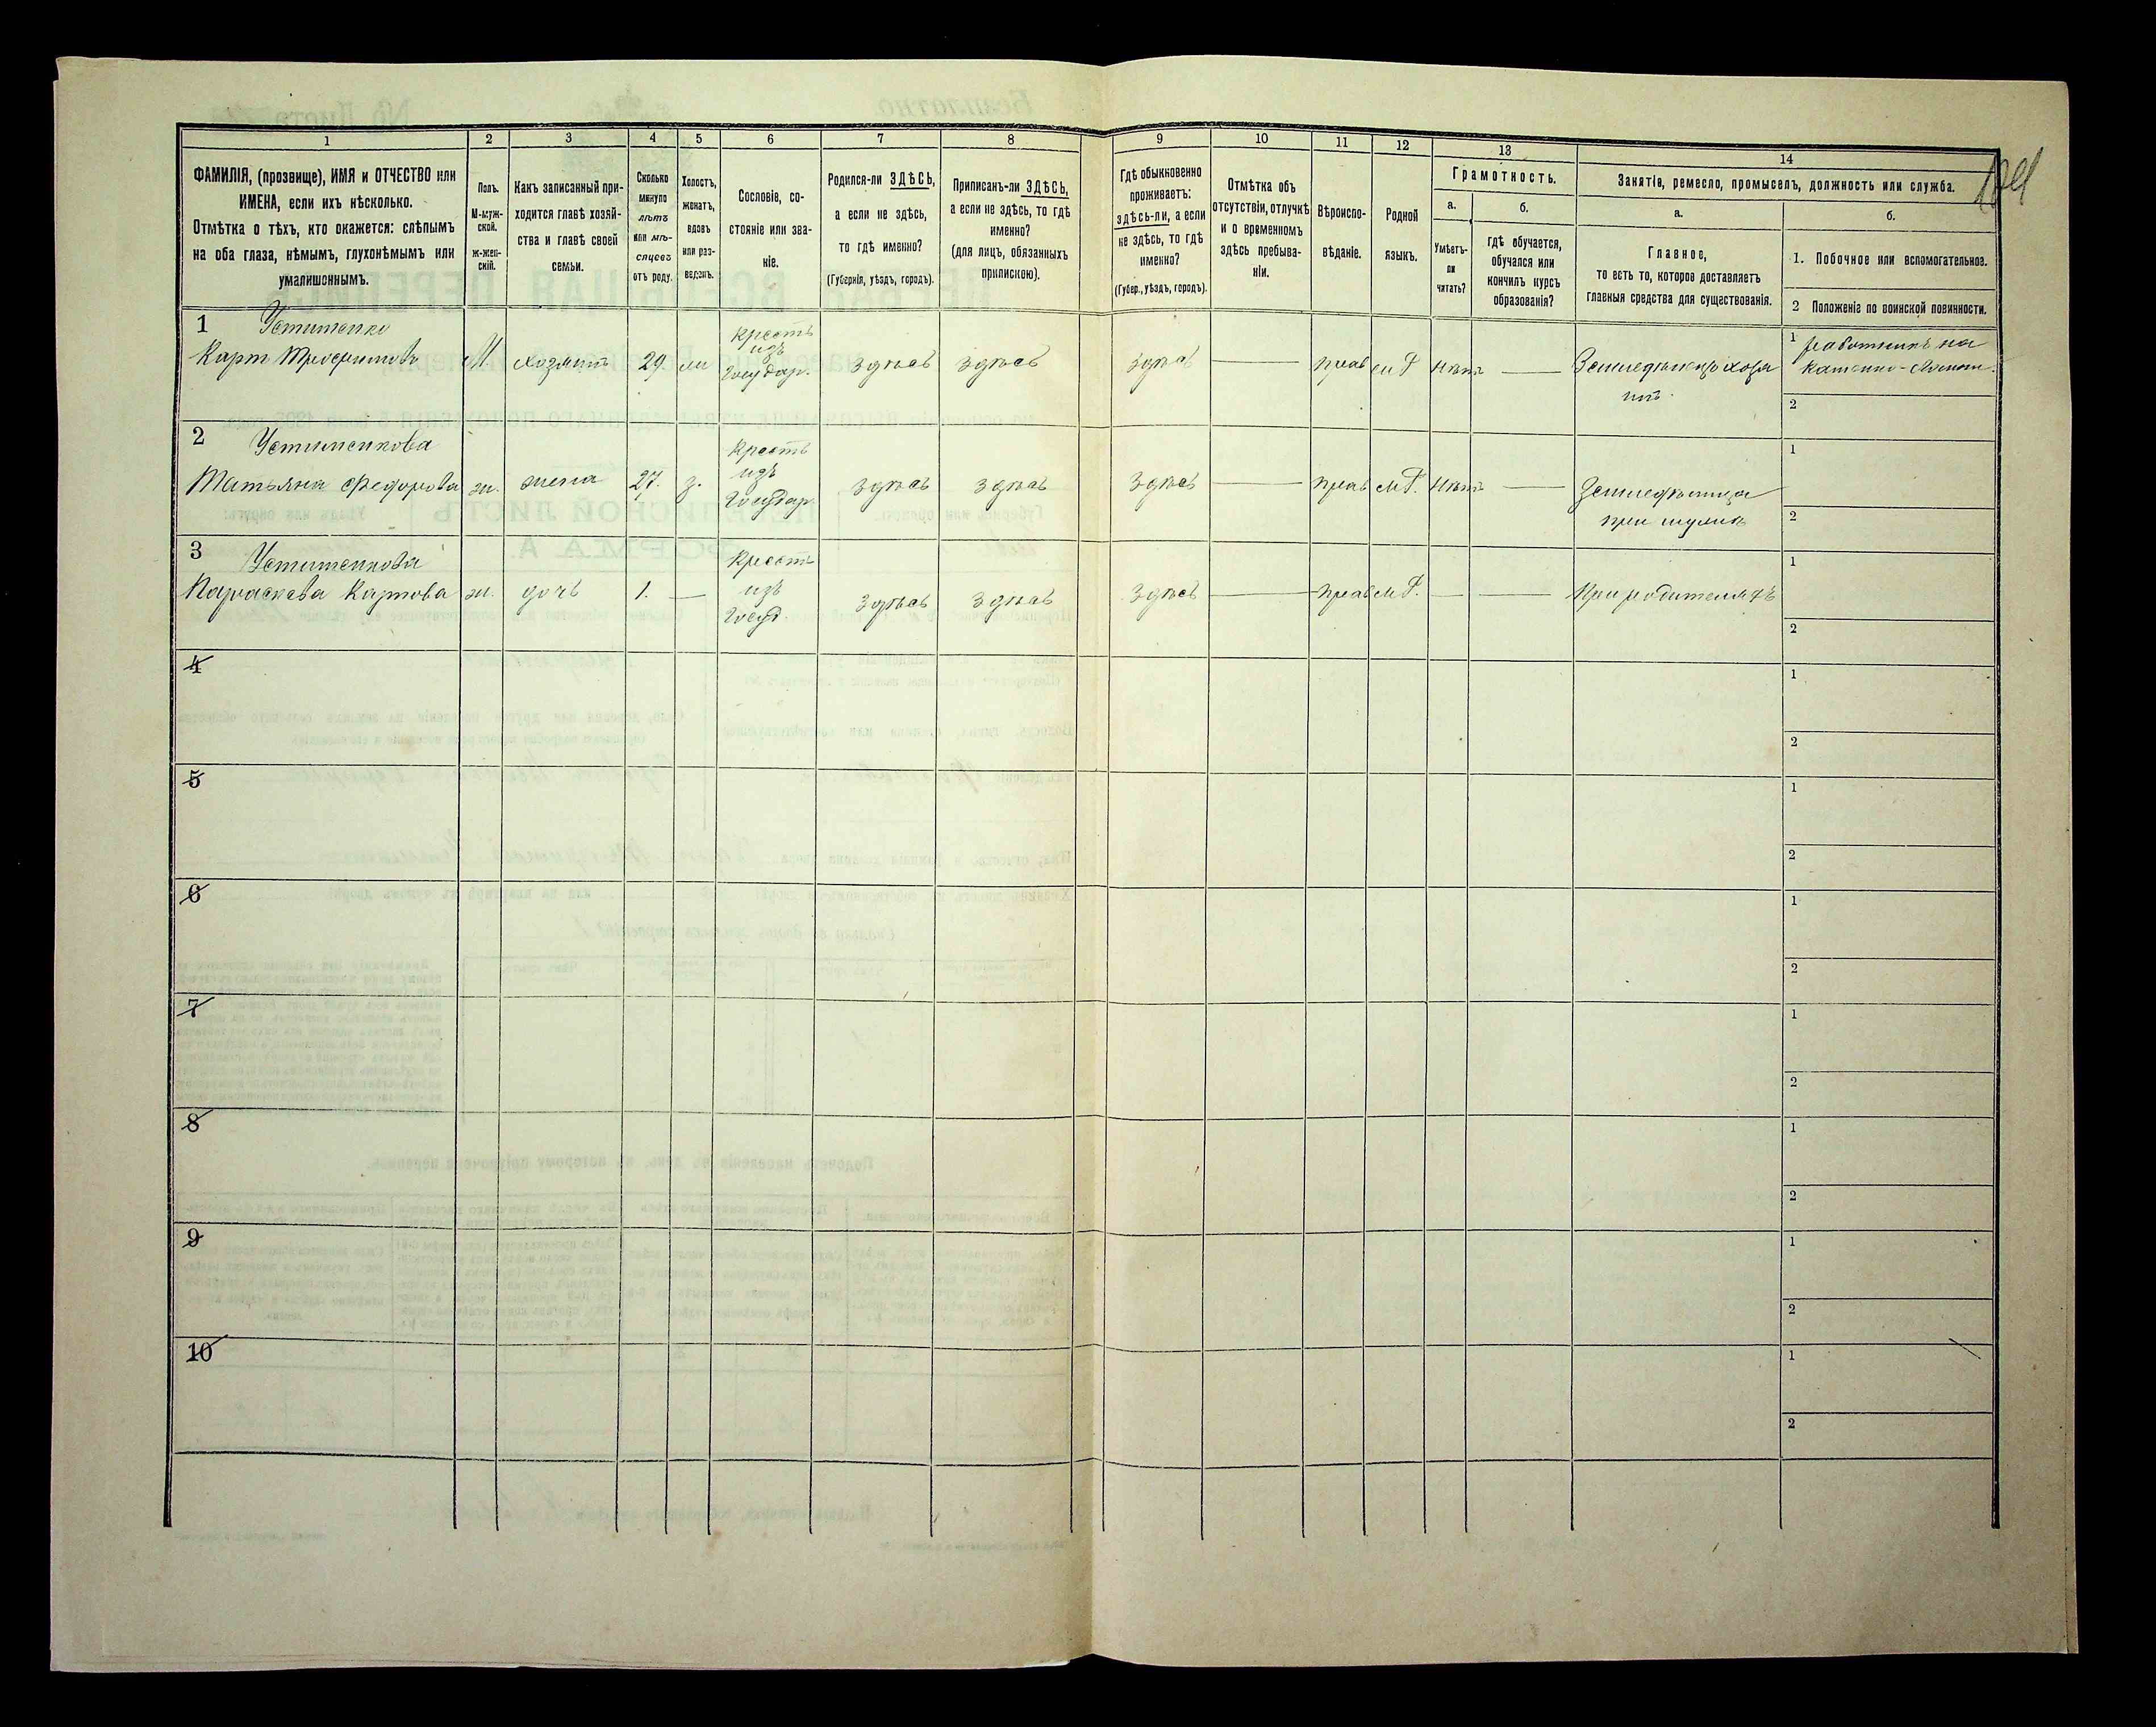 1 2 3 4 5 6 7 8 9 10 11 12 13 14
ФАМИЛІЯ, (прозвище), ИМЯ и ОТЧЕСТВО или
ИМЕНА, если ихъ нѣсколько.
Отмѣтка о тѣхъ, кто окажется: слѣпымъ
на оба глаза, нѣмымъ, глухонѣмымъ или
умалишоннымъ.
Полъ.
М-муж-
ской.
ж-жен-
скій.
Какъ записанный при-
ходится главѣ хозяй-
ства и главѣ своей
семьи.
Сколько
минуло
лѣтъ
или мѣ-
сяцевъ
отъ роду.
Холостъ,
женатъ,
вдовъ
или раз-
веденъ.
Сословіе, со-
стояніе или зва-
ніе.
Родился-ли ЗДѢСЬ,
а если не здѣсь,
то гдѣ именно?
(Губернія, уѣздъ, городъ).
Приписанъ-ли ЗДѢСЬ,
а если не здѣсь, то гдѣ
именно?
(для лицъ, обязанныхъ
припискою).
Гдѣ обыкновенно
проживаетъ:
здѣсь-ли, а если
не здѣсь, то гдѣ
именно?
(Губер., уѣздъ, городъ).
Отмѣтка объ
отсутствіи, отлучкѣ
и о временномъ
здѣсь пребыва-
ніи.
Вѣроиспо-
вѣданіе.
Родной
языкъ.
Грамотность.
а.
Умѣетъ-
ли
читать?
б.
гдѣ обучается,
обучался или
кончилъ курсъ
образованія?
Занятіе, ремесло, промыселъ, должность или служба.
а.
Главное,
то есть то, которое доставляетъ
главныя средства для существованія.
б.
1. Побочное или вспомогательное.
2 Положеніе по воинской повинности.
1 Устименко
Карп Трофимовъ М. хозяинъ 29 Крестъ
изъ
Государ. здѣсь здѣсь здѣсь — прав м.Р. нѣтъ — Земледѣлецъ хозя
инъ.
1 работникъ на
2
2 Устименкова
Татьяна Федорова ж. жена 27. з. Крестъ
изъ
Государ. здѣсь здѣсь здѣсь — прав м.Р. нѣтъ — Земледѣлица
при мужѣ
1
2
3 Устименкова
Параскева Карпова ж. дочь 1. — Крестъ
изъ
Госуд. здѣсь здѣсь здѣсь — прав м.Р. — — При родителяхъ
1
2
4
1
2
5
1
2
6
1
2
7
1
2
8
1
2
9
1
2
10
1
2